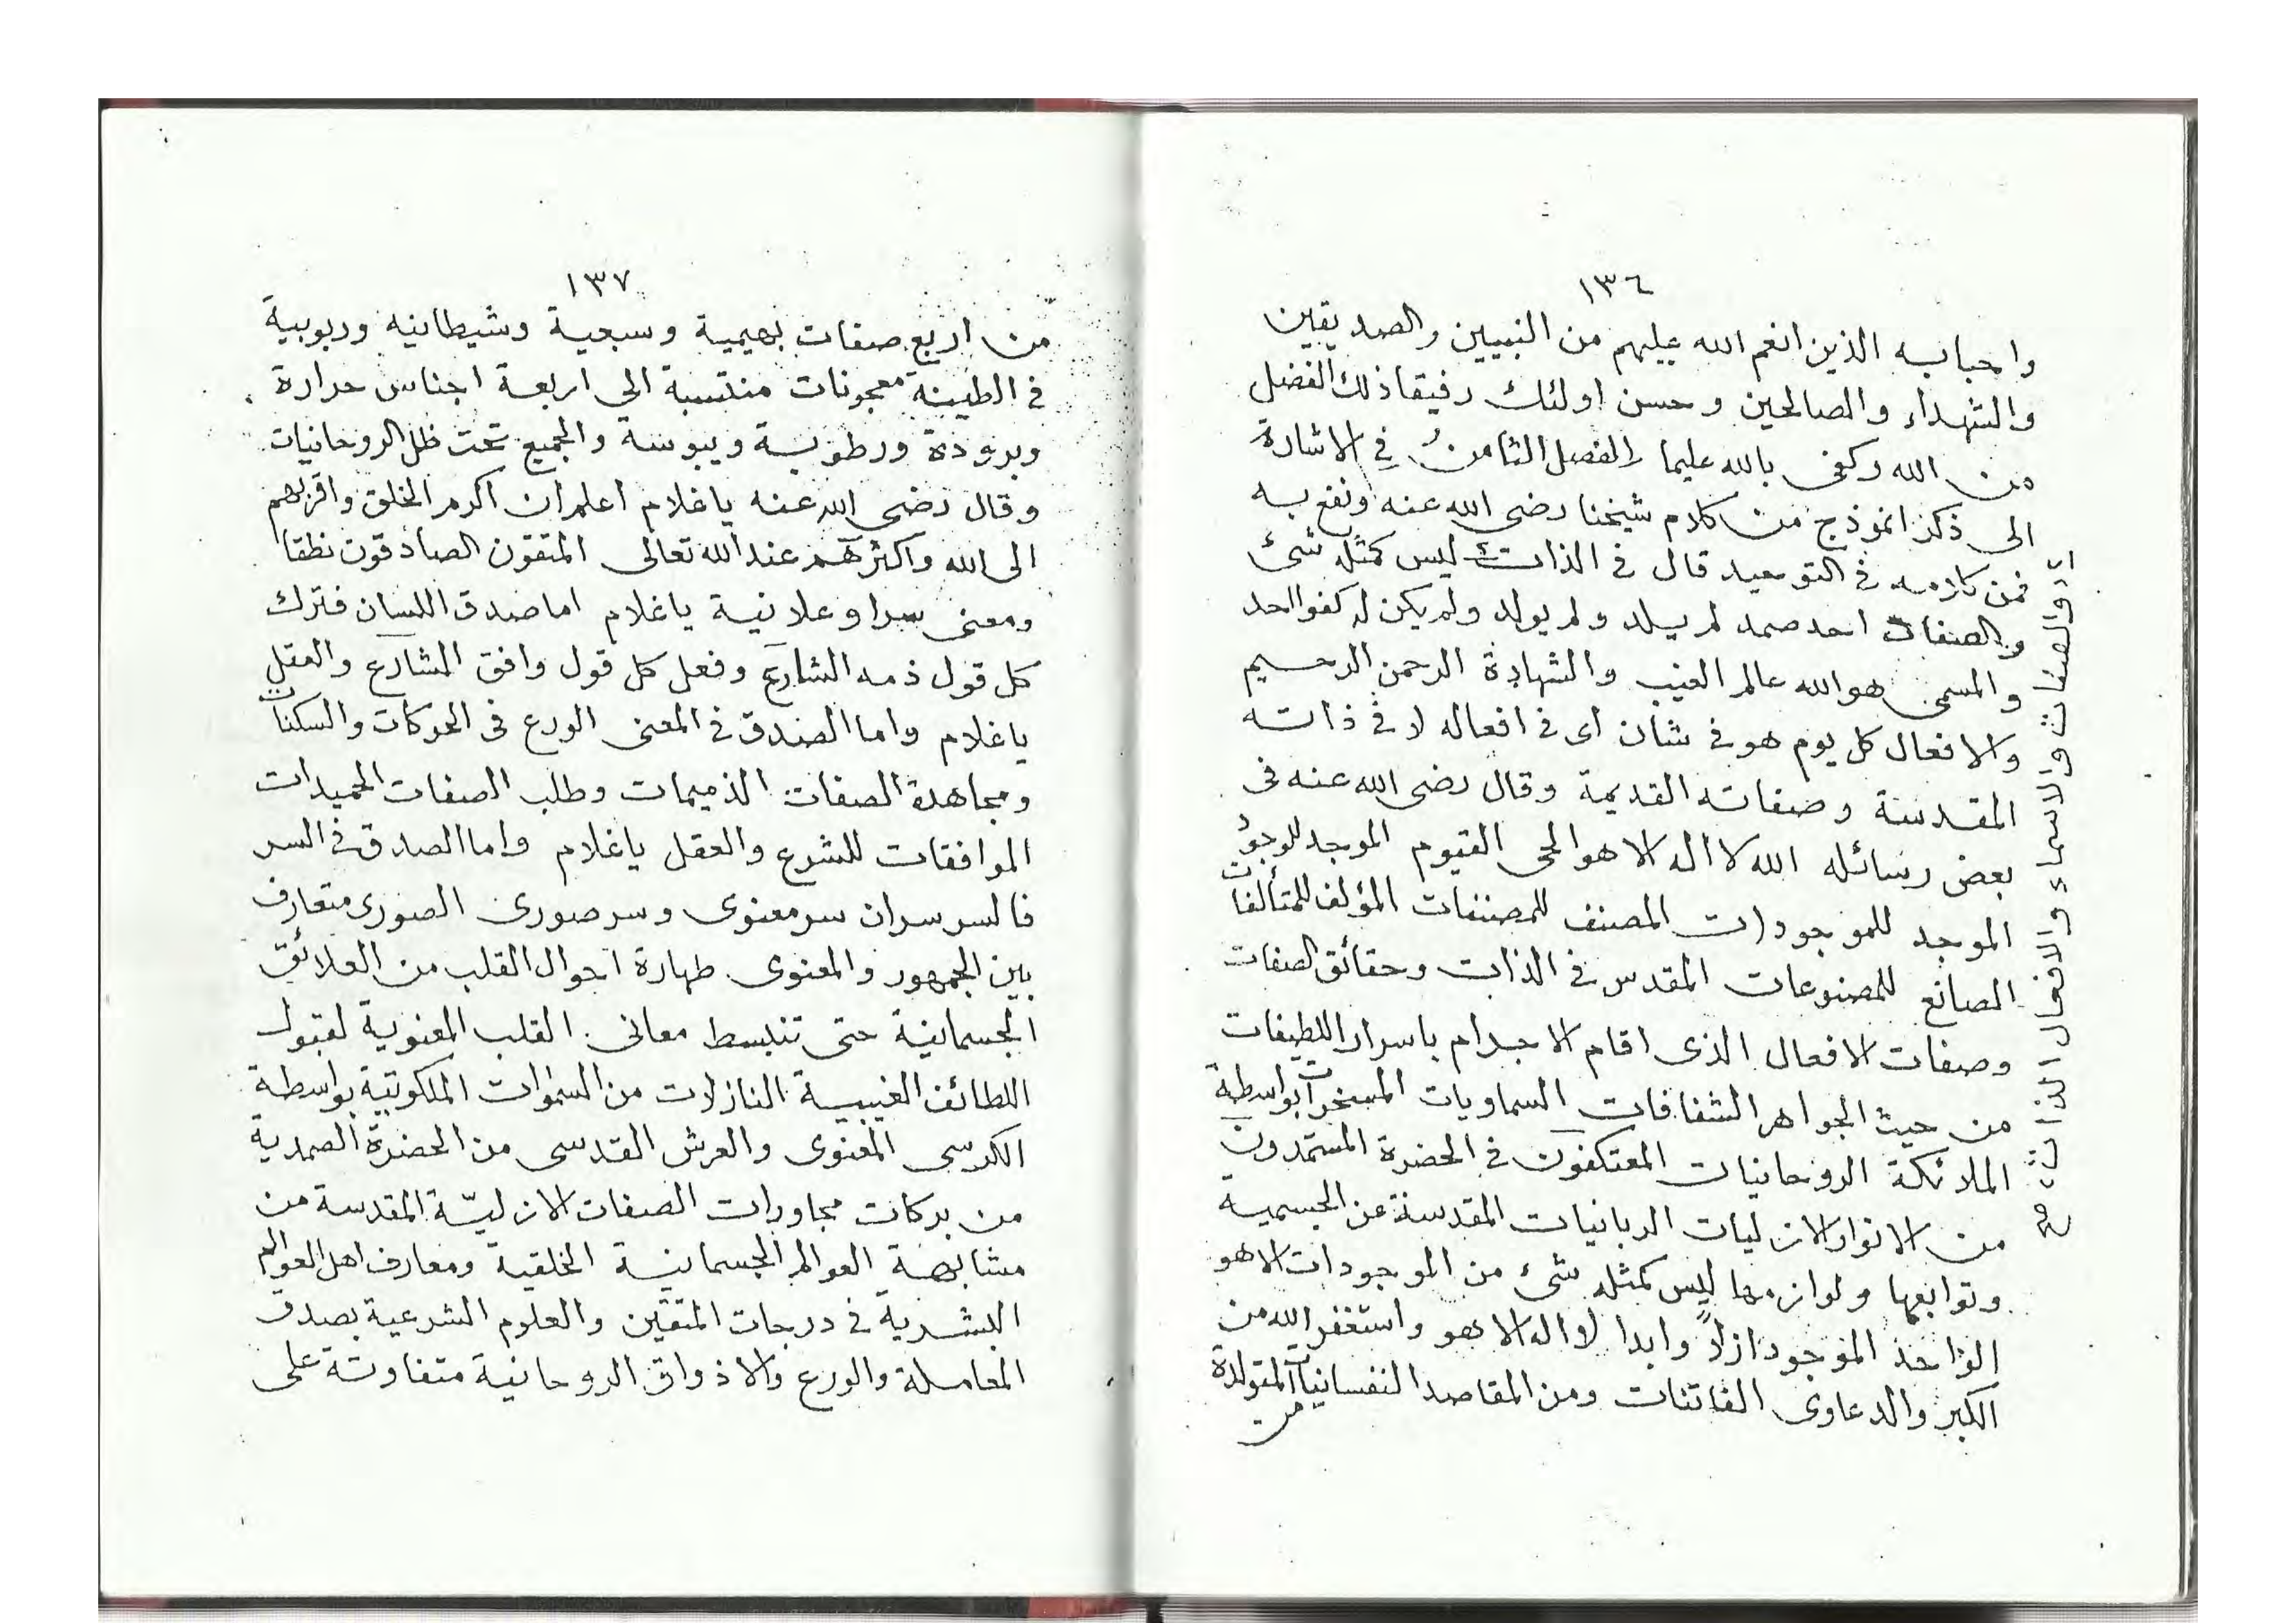 ١٣٦
واحبابه الذين انعم الله عليهم من النبيين والصديقين
والشهداء والصالحين وحسن اولئك رفيقا ذلك الفضل
من الله وكفى بالله عليما والفصل الثامن في الاشارة
الى ذكر انموذج من كلام شيخنا رضى الله عنه ونفع به
فمن كلامه في التوحيد قال في الذات ليس كمثله شئ
والصفات احد صمد لم يلد ولم يولد ولم يكن له كفوا احد
والمسمى هو الله عالم الغيب والشهادة الرحمن الرحيم
والافعال كل يوم هو في شان اى في افعاله لا في ذاته
المقدسة وصفاته القديمة وقال رضى الله عنه فى
بعض رسائله الله لا اله الا هو الحى القيوم الموجد للوجود
الموجد للموجودات المصنف للمصنفات المؤلف للمتألفات
الصانع للمصنوعات المقدس في الذات وحقائق الصفات
وصفات الافعال الذى اقام الاجرام باسرار اللطيفات
من حيث الجواهر الشفافات السماويات المسخرات بواسطة
الملائكة الروحانيات المعتكفون في الحضرة المستمدون
من الانوار الازليات الربانيات المقدسة عن الجسمية
وتوابعها ولوازمها ليس كمثله شئ من الموجودات الا هو
الواحد الموجود ازلاً وابدا لا اله الا هو واستغفر الله من
الكبر والدعاوى الفاتنات ومن المقاصد النفسانيات المتولدة
من
والصفات والاسماء والافعال الذات
١٣٧
من اربع صفات بهيمية وسبعية وشيطانيه وربوبية
في الطينة معجونات منتسبة الي اربعة اجناس حرارة
وبرودة ورطوبة ويبوسة والجميع تحت ظل الروحانيات
وقال رضى الله عنه ياغلام اعلم ان اكرم الخلق واقربهم
الى الله واكثرهم عند الله تعالى المتقون الصادقون نطقا
ومعنى سرا وعلانية ياغلام اما صدق اللسان فترك
كل قول ذمه الشارع وفعل كل قول وافق الشارع والعقل
ياغلام واما الصدق في المعنى الورع فى الحركات والسكنات
ومجاهدة الصفات الذميمات وطلب الصفات الحميدات
الموافقات للشرع والعقل ياغلام واما الصدق في السر
فالسر سران سر معنوى وسر صورى الصورى متعارف
بين الجمهور والمعنوى طهارة احوال القلب من العلائق
الجسمانية حتى تنبسط معانى القلب المعنوية لقبول
اللطائف الغيبية النازلات من السموات الملكوتية بواسطة
الكرسى المعنوى والعرش القدسى من الحضرة الصمدية
من بركات مجاورات الصفات الازليّة المقدسة من
مشابهة العوالم الجسمانية الخلقية ومعارف اهل العوالم
البشرية في درجات المتقين والعلوم الشرعية بصدق
المعاملة والورع والاذواق الروحانية متفاوتة على